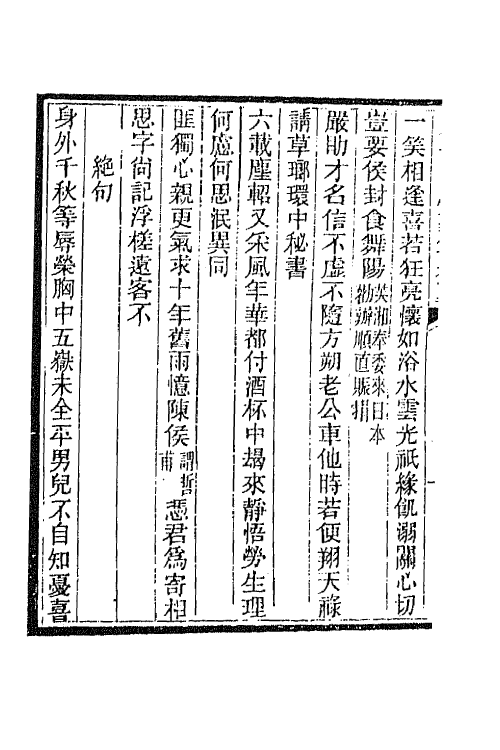 一笑相逢喜若狂亮懷如浴水雲光祇緣飢溺關心切
豈要侯封食舞陽英湘奉委來日本
勸辦順直賑捐
嚴助才名信不虛不隨方朔老公車他時若便翔天祿
請草瑯環中秘書
六載塵軺又采風年華都付酒杯中朅來靜悟勞生理
何慮何思泯異同
匪獨心親更氣求十年舊雨憶陳侯謂哲
甫慿君爲寄相
思字尙記浮槎遠客不
絕句
身外千秋等辱榮胸中五嶽未全平男兒不自知憂喜